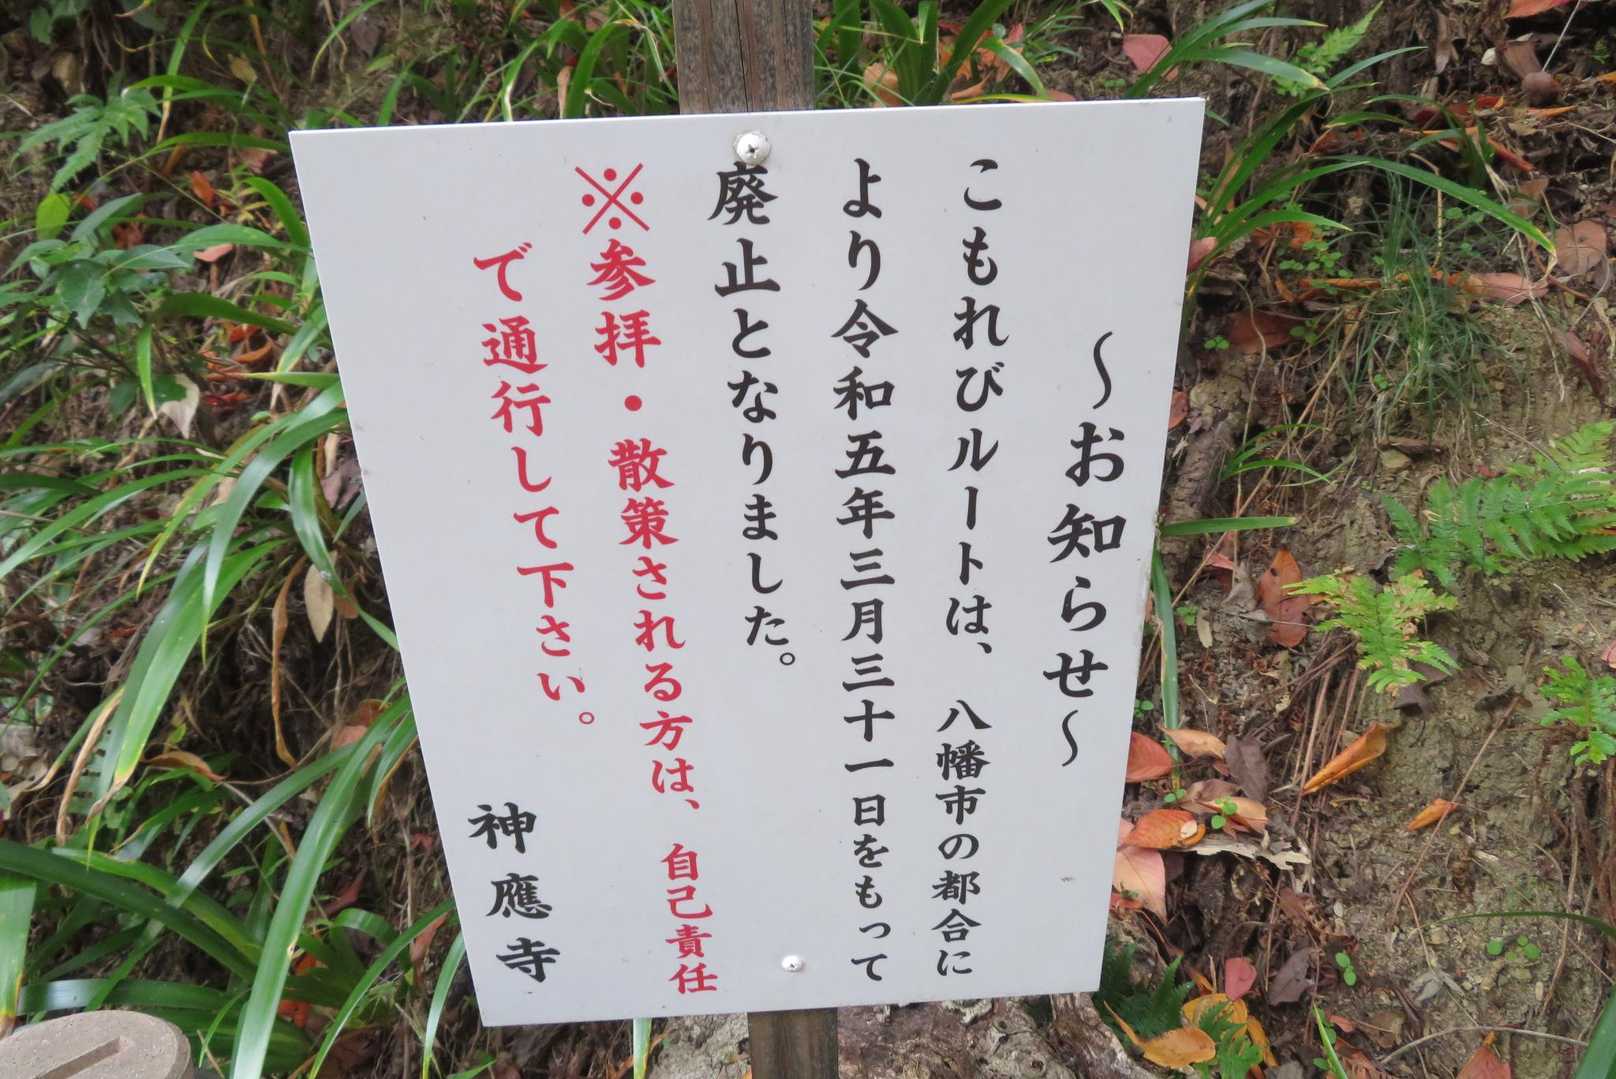 ～お知らせ～
こもれびルートは、八幡市の都合に
より令和五年三月三十一日をもって
廃止となりました。
※参拝・散策される方は、自己責任
で通行して下さい。
神應寺